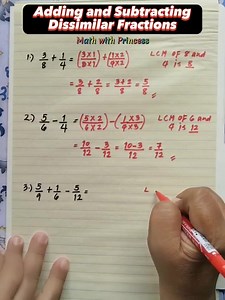 Adding and Subtracting
Dissimilar Fractions
Math with Princess
1.) 3/8 + 1/4 = (3×1/8×1) + (1×2/4×2) LCM OF 8 and 4 is 8
= 3/8 + 2/8 = 3+2/8 = 5/8
2.) 5/6 - 1/4 = (5×2/6×2) - (1×3/4×3) LCM OF 6 and 4 is 12
= 10/12 - 3/12 = 10-3/12 = 7/12
3.) 5/9 + 1/6 - 5/12 = L